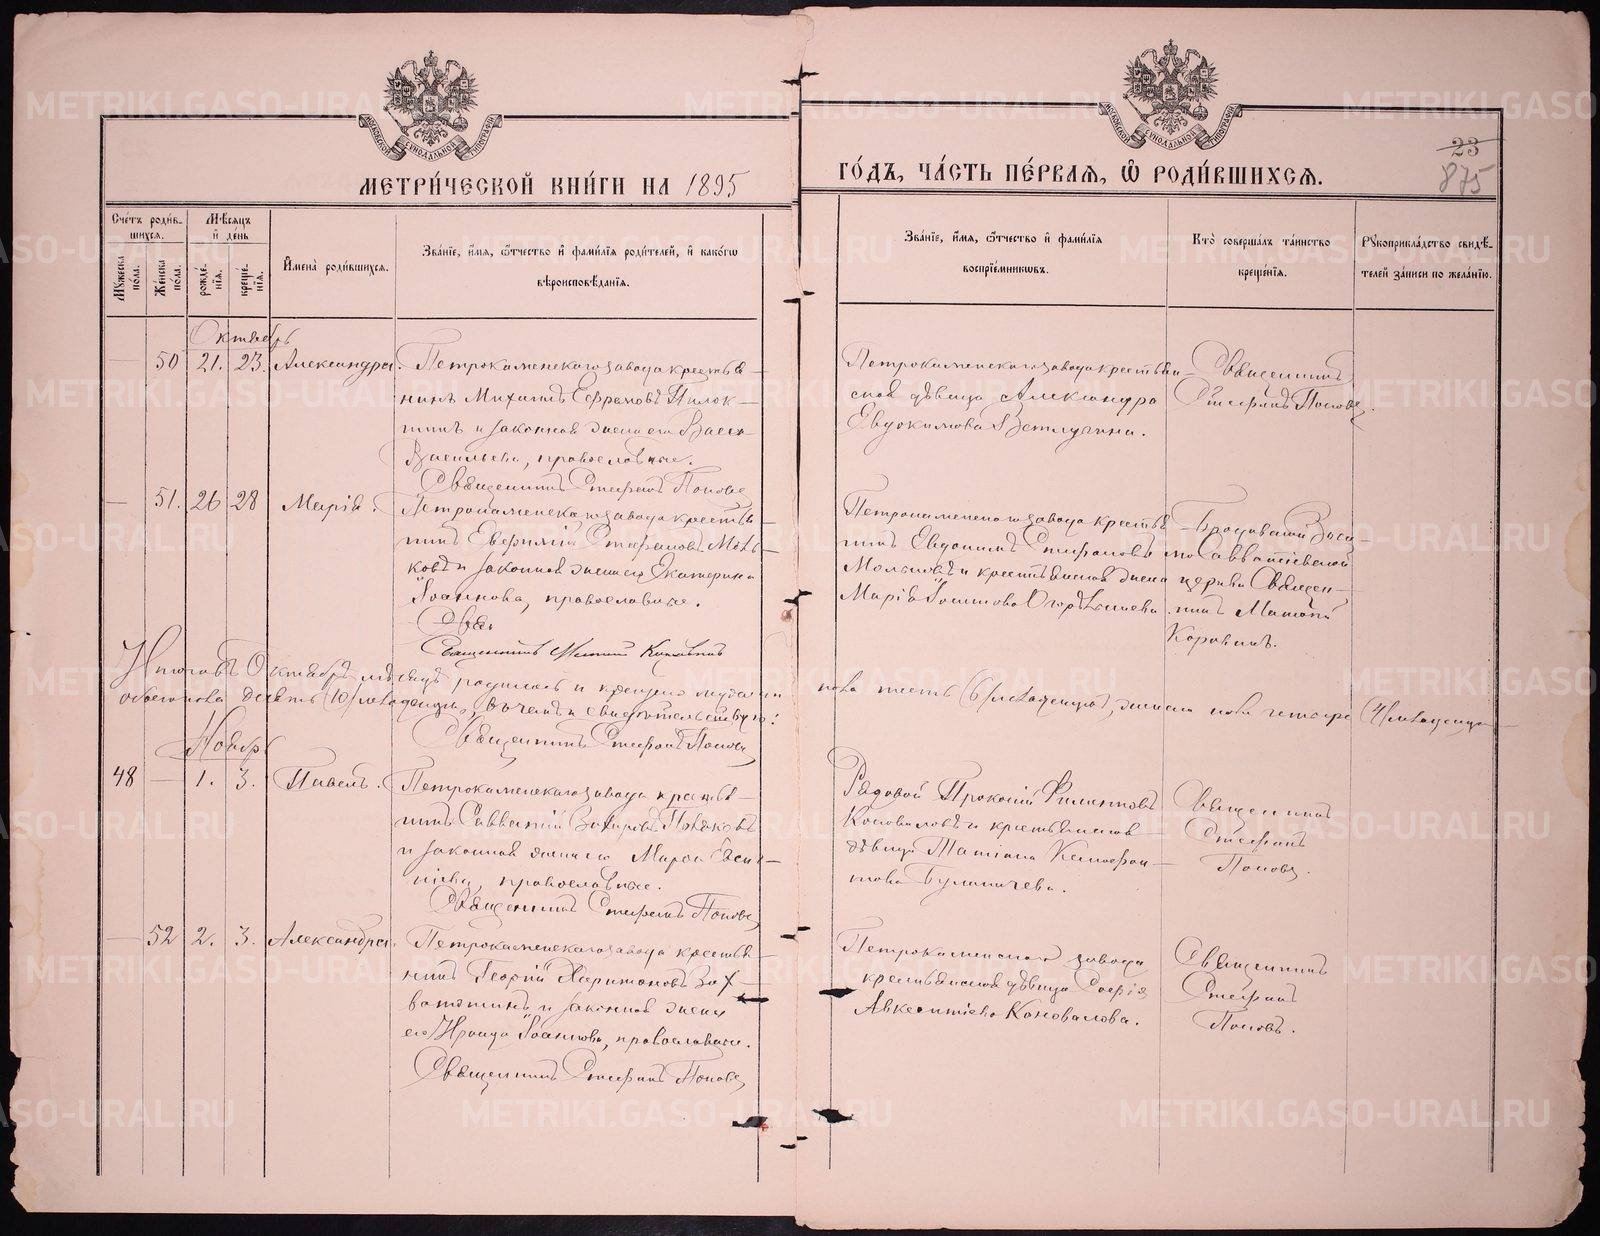 МЕТРИ́ЧЕСКОЙ КНИ́ГИ НА 1895
ГО́ДЪ, ЧА́СТЬ ПЕ́РВАѦ, Ѽ РОДИ́ВШИХСѦ.
23
875
Сче́тъ роди́в-
шихсѧ.
Мѣсѧцъ
и҆ де́нь
Мꙋжеска по́ла.
Же́нска по́ла.
рожде́нїѧ.
креще́нїѧ.
И҆мена̀ роди́вшихсѧ.
Зва́нїе, и҆́мѧ, ѻ҆́тчество и҆ фами́лїѧ роди́телей, и҆ како́гѡ
вѣроисповѣ́данїѧ.
Зва́нїе, и҆́мѧ, ѻ҆́тчество и҆ фами́лїѧ
воспрїе́мникѡвъ.
Кто̀ соверша́лъ та́инство
креще́нїѧ.
Рꙋкоприкла́дство свидѣ́-
телей за́писи по жела́нїю.
Октябрь
50 21. 23. Александра.
Петрокаменскаго завода крестья-
нинъ Михаилъ Ефремовъ
и законная жена его Васса
Васильева, православные.
Священникъ Стефанъ Поповъ
Петрокаменскаго завода крестьян-
ская дѣвица Александра
Евдокимова Ветлугина.
Священникъ
Стефанъ Поповъ.
51. 26 28 Марія.
Петрокаменскаго завода крестья-
нинъ Евфимій Стефановъ
и законная жена его Екатерина
Іоаннова, православные.
Священникъ
Петрокаменскаго завода крестья-
нинъ Евдокимъ Стефановъ
и крестьянская жена
Марія
церкви Священ-
никъ
Коровинъ.
Итого въ Октябрѣ мѣсяцѣ родилось и крещено мужеска
пола шесть (6) младенцевъ, женска пола четыре (4) младенца
обоего пола десять (10) младенцевъ, въ чемъ и свидѣтельствую:
Священникъ Стефанъ Поповъ
Ноябрь
48 — 1. 3. Павелъ.
Петрокаменскаго завода крестья-
нинъ Савватій Захаровъ
и законная жена его Марѳа
православные.
Священникъ Стефанъ Поповъ
Рядовой Прокопій Филипповъ
Коноваловъ и крестьянская
дѣвица Татіана Ксенофон-
това
Священникъ
Стефанъ
Поповъ.
— 52 2. 3. Александра.
Петрокаменскаго завода крестья-
нинъ Георгій Харитоновъ Зах-
ваткинъ и законная жена
его Ираида Іоаннова, православные.
Священникъ Стефанъ Поповъ
Петрокаменскаго завода
крестьянская дѣвица Софія
Авксентіева Коновалова.
Священникъ
Стефанъ
Поповъ.
METRIKI.GASO-URAL.RU